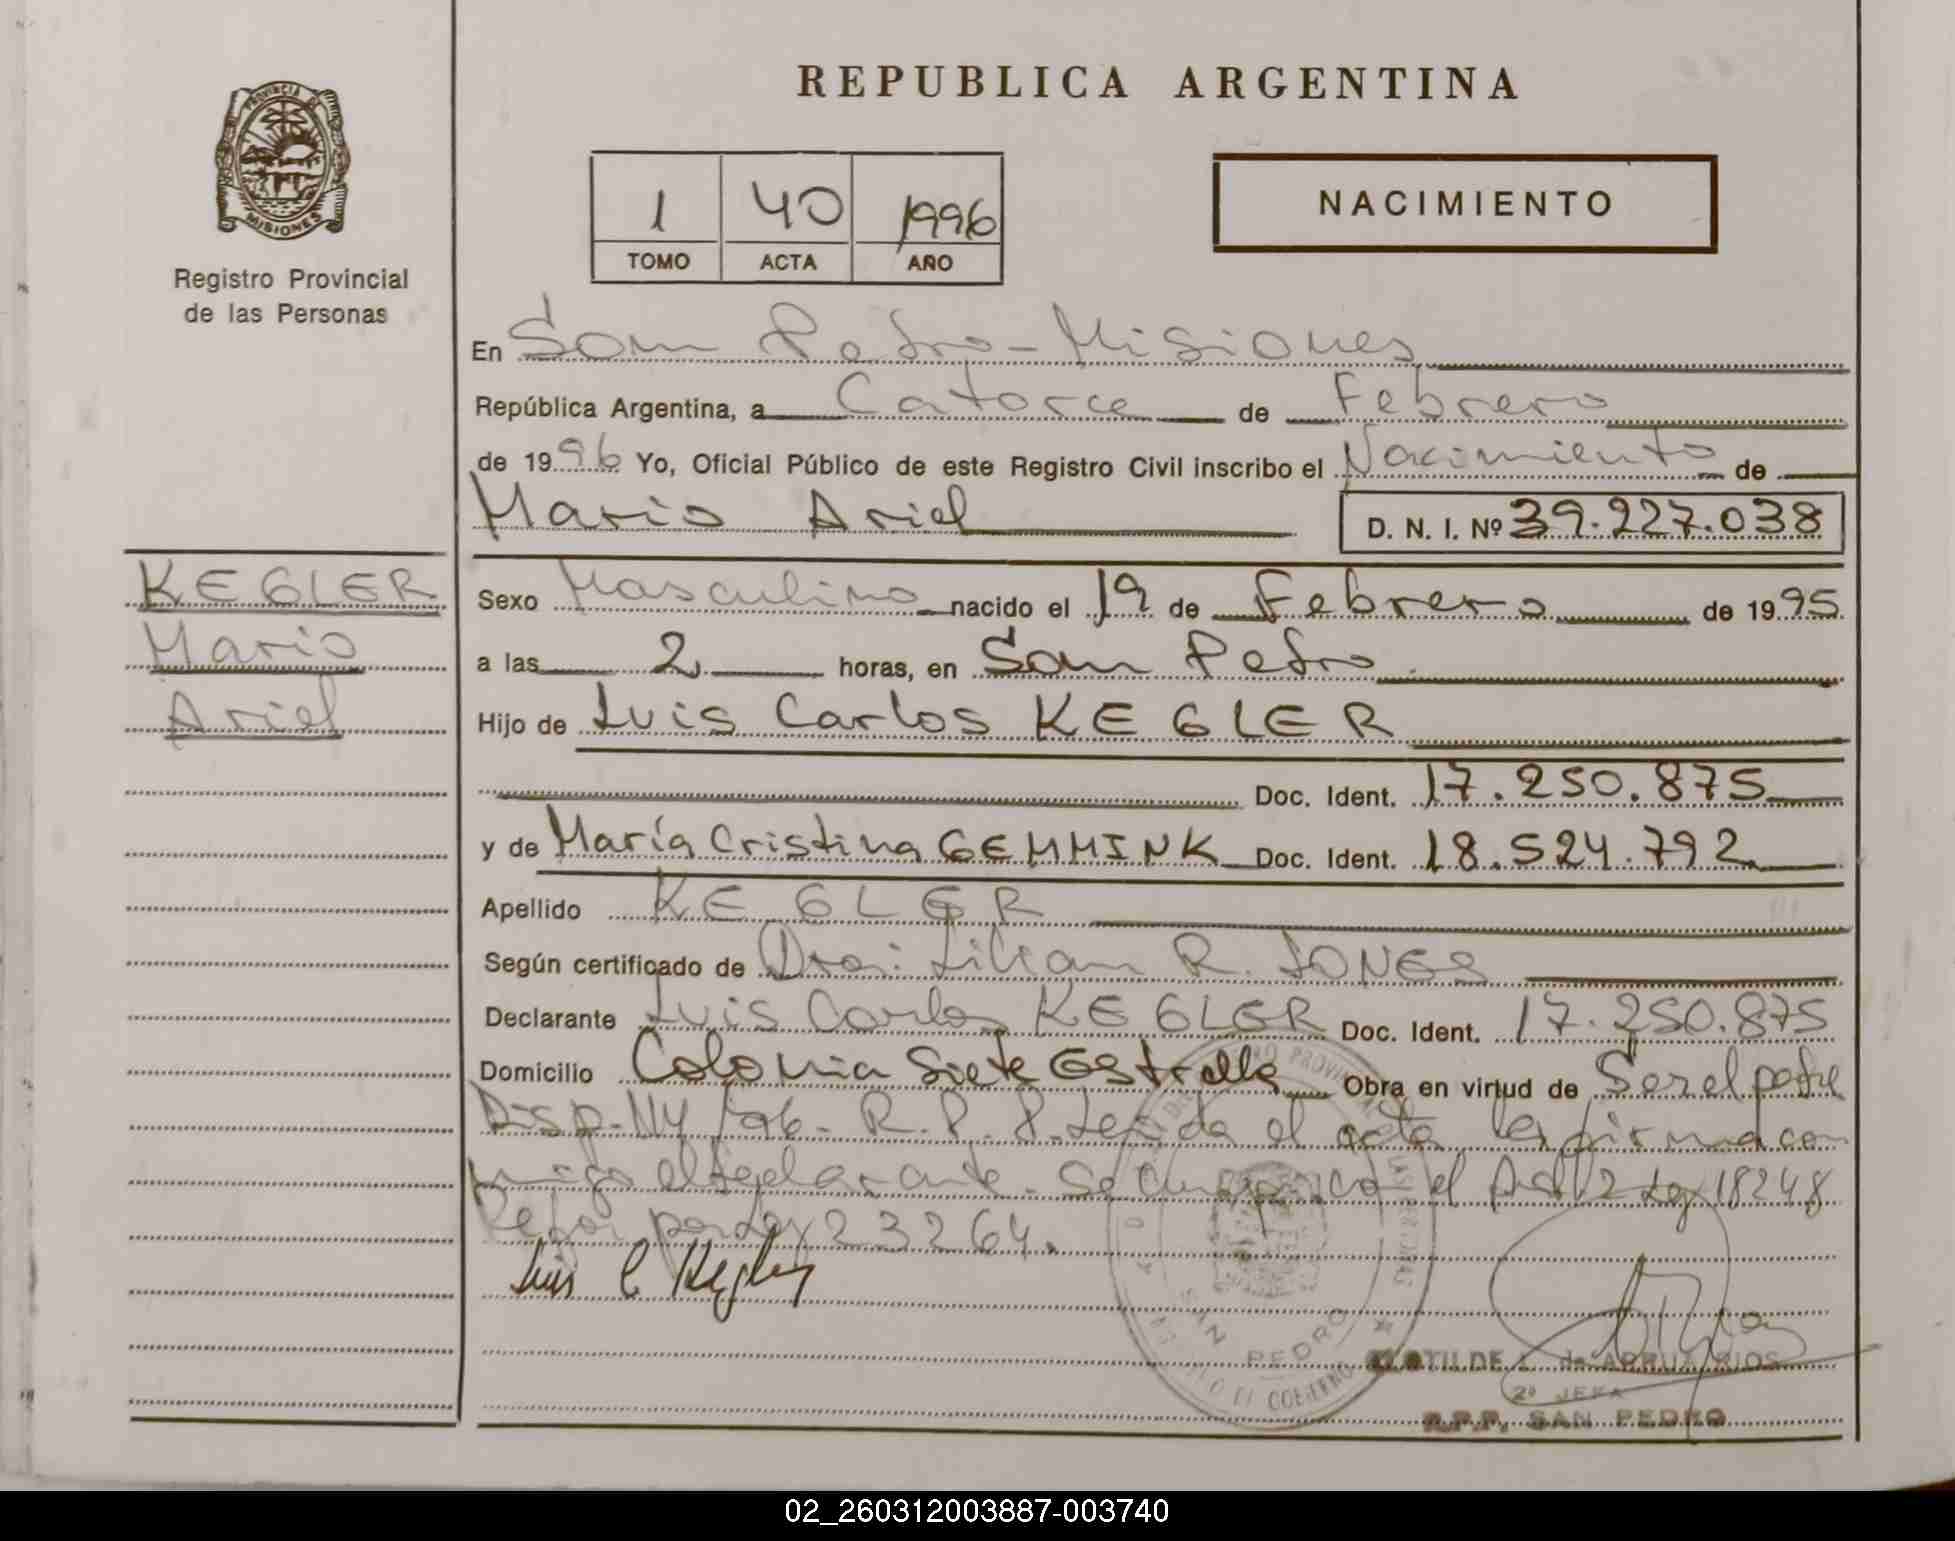 REPUBLICA ARGENTINA
PROVINCIA DE
MISIONES
Registro Provincial
de las Personas
1 40 1996
TOMO ACTA AÑO
NACIMIENTO
En San Pedro - Misiones
República Argentina, a Catorce de Febrero
de 1996 Yo, Oficial Público de este Registro Civil inscribo el Nacimiento de
Mario Ariel
D. N. I. Nº 39.227.038
KEGLER
Mario
Ariel
Sexo Masculino nacido el 19 de Febrero de 1995
a las 2 horas, en San Pedro
Hijo de Luis Carlos KEGLER
Doc. Ident. 17.250.875
y de María Cristina GEMMINK Doc. Ident. 18.524.792
Apellido KEGLER
Según certificado de Dra: Lilian R. JONES
Declarante Luis Carlos KEGLER Doc. Ident. 17.250.875
Domicilio Colonia Siete Estrella Obra en virtud de Ser el padre
Disp. 114/96 - R. P. P. Leída el acta la firma con
migo el declarante. Se cumplico el Art 12 Ley 18248
Refor por Ley 23264.
Luis C Kegler
SAN PEDRO
CLOTILDE de ARRUA RIOS
2º JEFA
R.P.P. SAN PEDRO
02_260312003887-003740